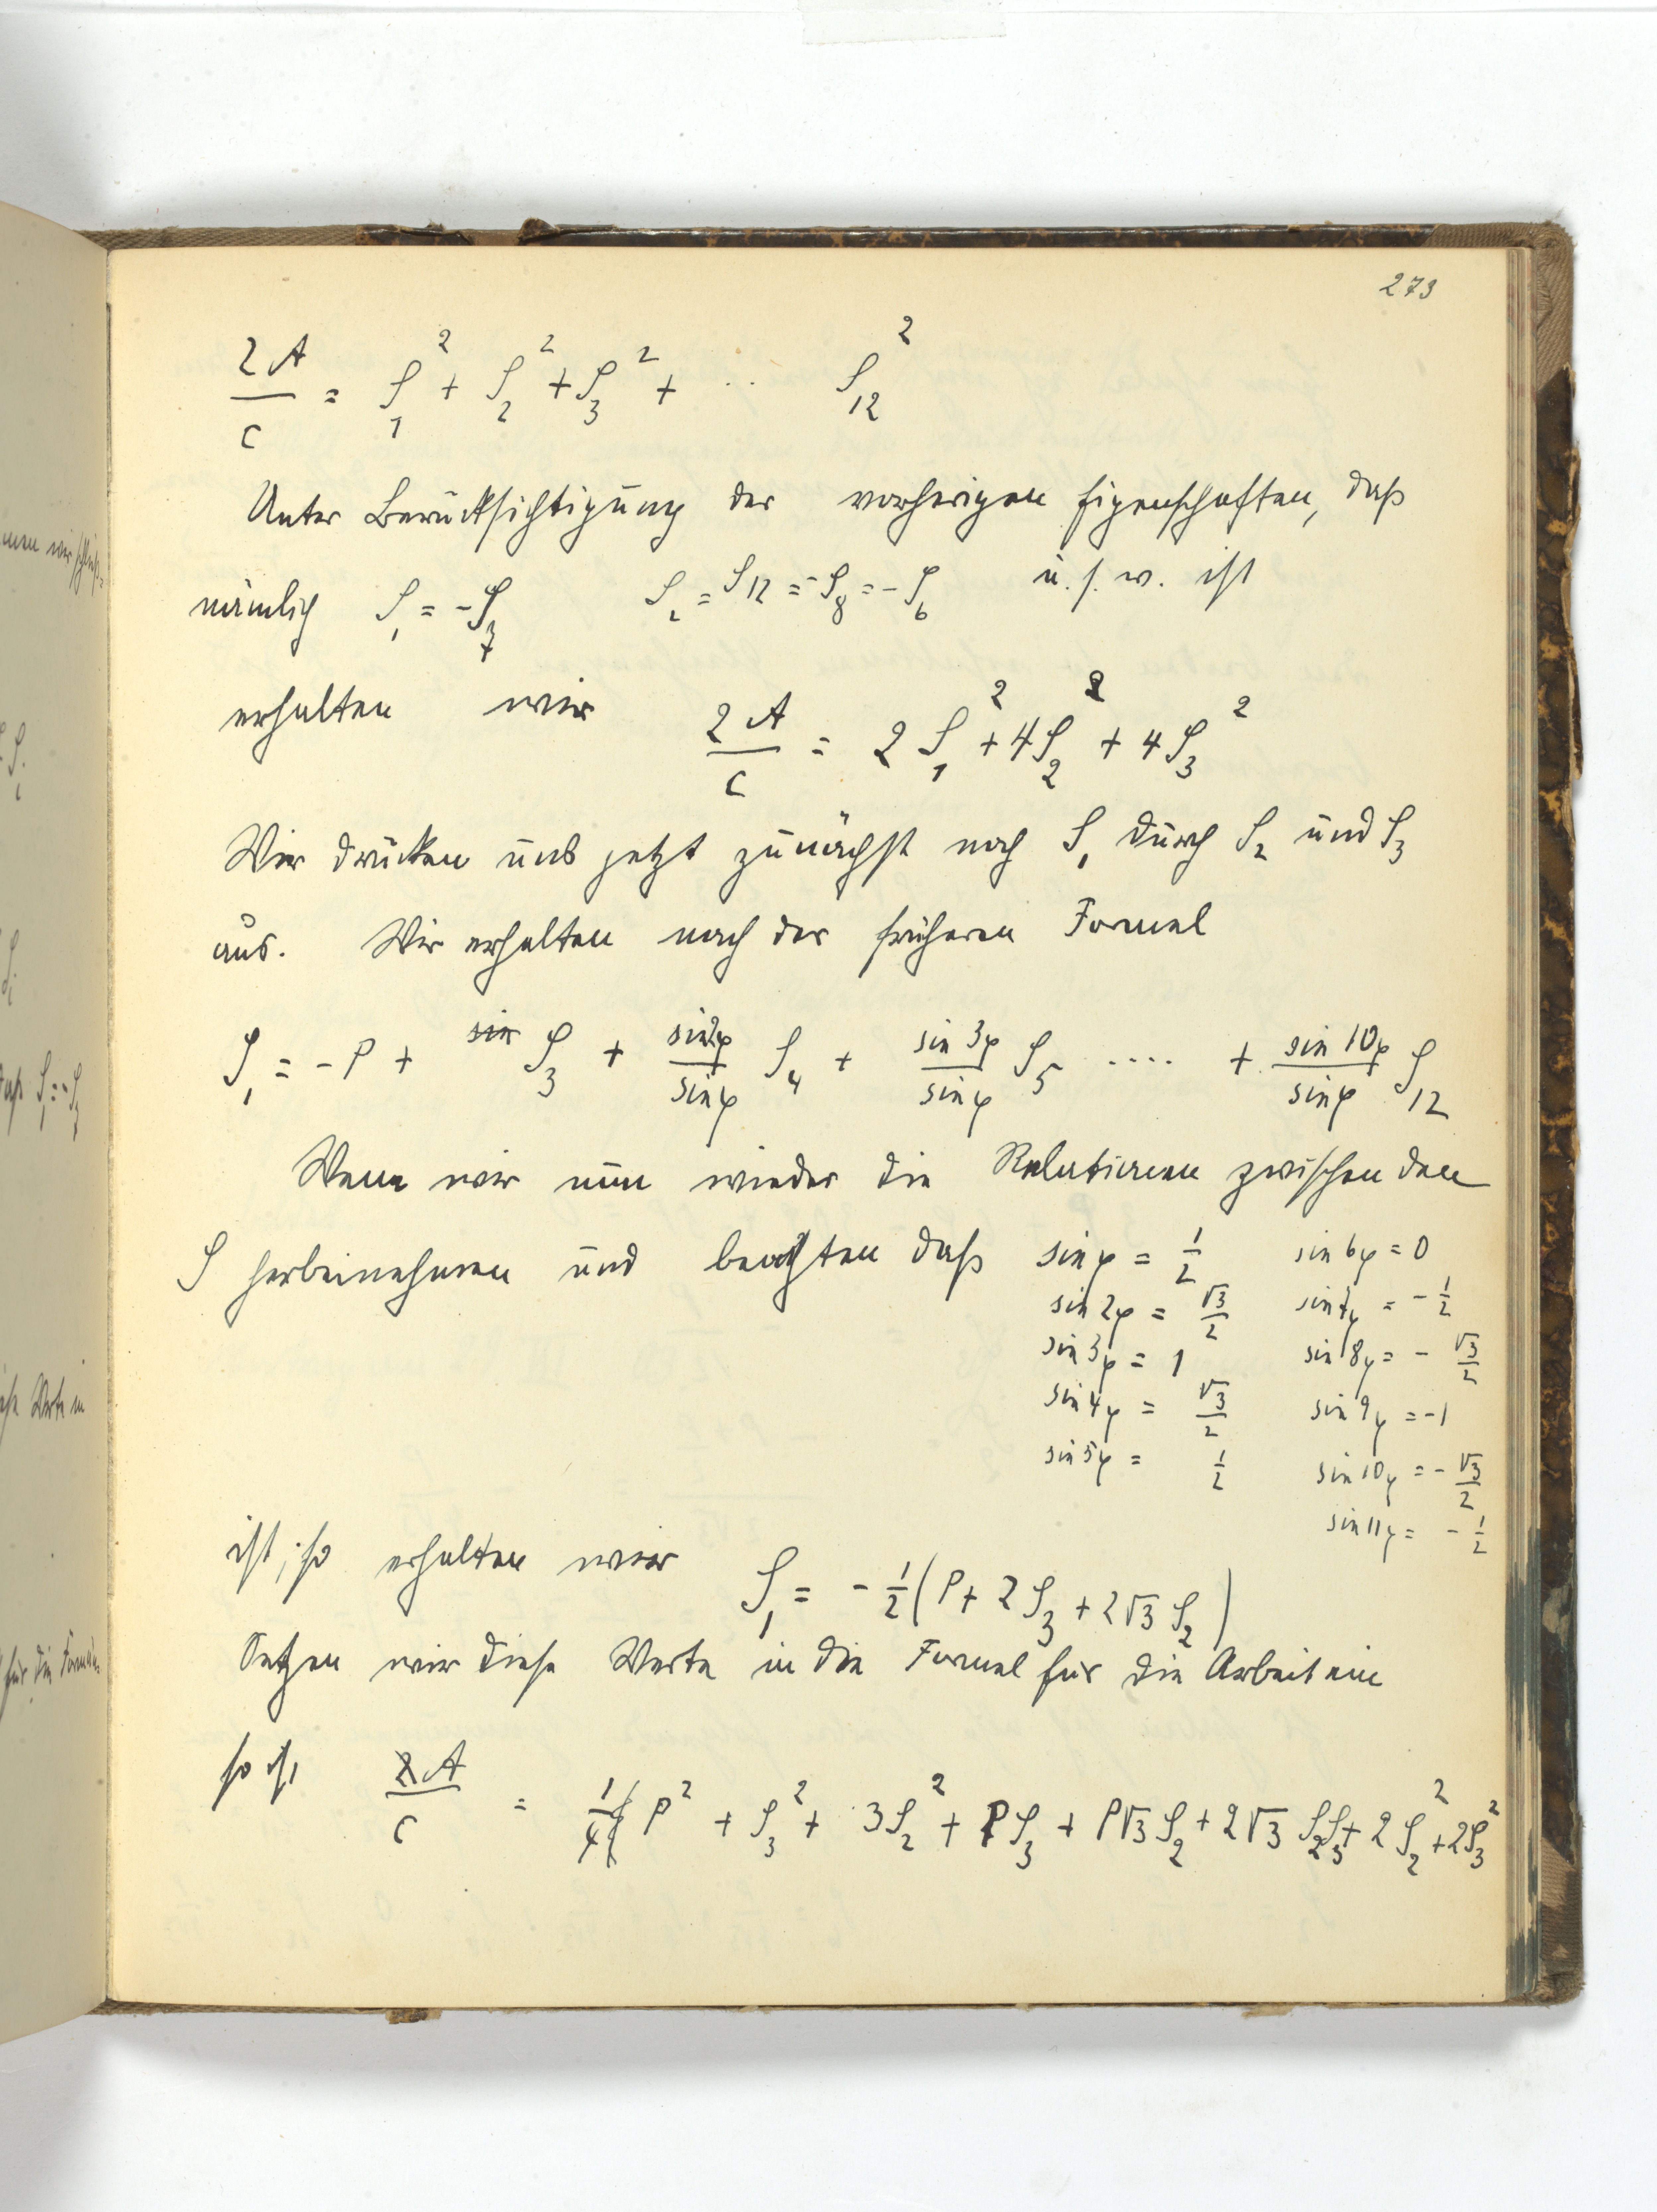 273
2A/C = S₁² + S₂² + S₃² + .. S₁₂²
Unter Berücksichtigung der vorherigen Eigenschaften, daß
nämlich S₁ = -S₇ S₂ = S₁₂ = -S₈ = -S₆ u.s.w. ist
erhalten wir 2A/C = 2S₁² + 4S₂² + 4S₃²
Wir drücken uns jetzt zunächst noch S₁ durch S₂ und S₃
aus. Wir erhalten nach der früheren Formel
S₁ = -P + S₃ + sin2φ/sinφ S₄ + sin 3φ/sinφ S₅ .... + sin 10φ/sinφ S₁₂
Wenn wir nun wieder die Relationen zwischen den
S herbeinehmen und beachten daß sin φ = 1/2 sin 6φ = 0
sin 2φ = √3/2 sin 7φ = -1/2
sin 3φ = 1 sin 8φ = -√3/2
sin 4φ = √3/2 sin 9φ = -1
sin 5φ = 1/2 sin 10φ = -√3/2
sin 11φ = -1/2
ist, so erhalten wir S₁ = -1/2 (P + 2S₃ + 2√3 S₂)
Setzen wir diese Werte in die Formel für die Arbeit ein
so ist A/C = 1/4 P² + S₃² + 3S₂² + PS₃ + P√3 S₂ + 2√3 S₂S₃ + 2S₂² + 2S₃²